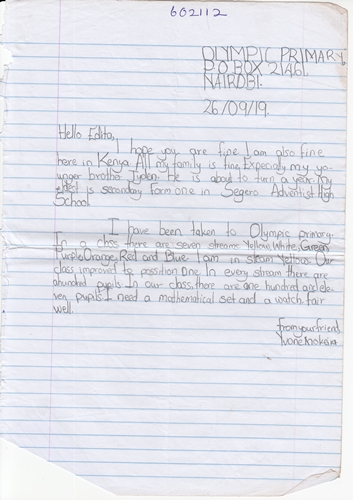 602112
OLYMPIC PRIMARY,
P.O BOX 21461.
NAIROBI.
26/09/19.
Hello Edita,
I hope you are fine I am also fine
here in Kenya. All my family is fine. Expecially my yo-
unger brother Jyden. He is about to turn a year. My
eldest is secondary form one in Segero Adventist High
School
I have been taken to Olympic primary.
In a class there are seven streams Yellow, White, Green
Purple, Orange, Red and Blue. I am in steam Yellow. Our
class improved to possition one. In every stream there are
ahundred pupils. In our class, there are one hundred and ele-
ven pupils. I need a mathematical set and a watch. fair
well.
from your friend,
Yvone